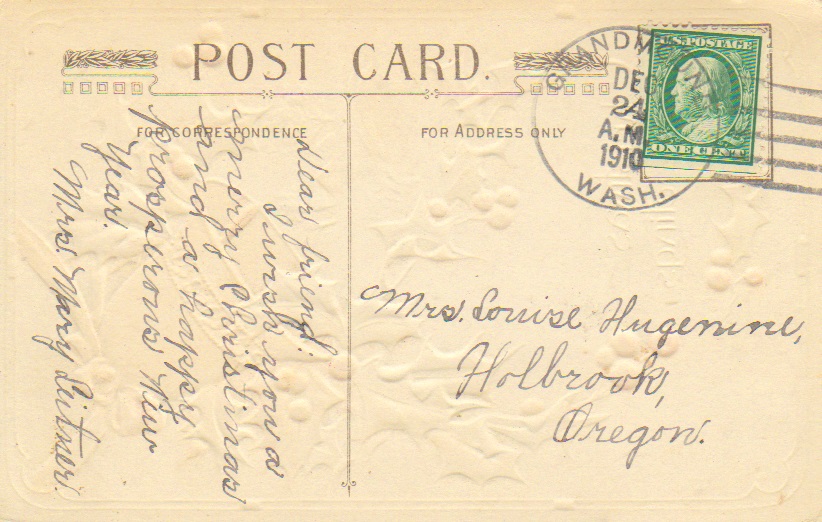 POST CARD.
FOR CORRESPONDENCE
FOR ADDRESS ONLY
DEC
24
A.M.
1910
WASH.
U.S. POSTAGE
ONE CENT
Dear friend
I wish you a
merry Christmas
and a happy
prosperous New
Year.
Mrs Mary Leitner.
Mrs. Louise Hugenine,
Holbrook,
Oregon.